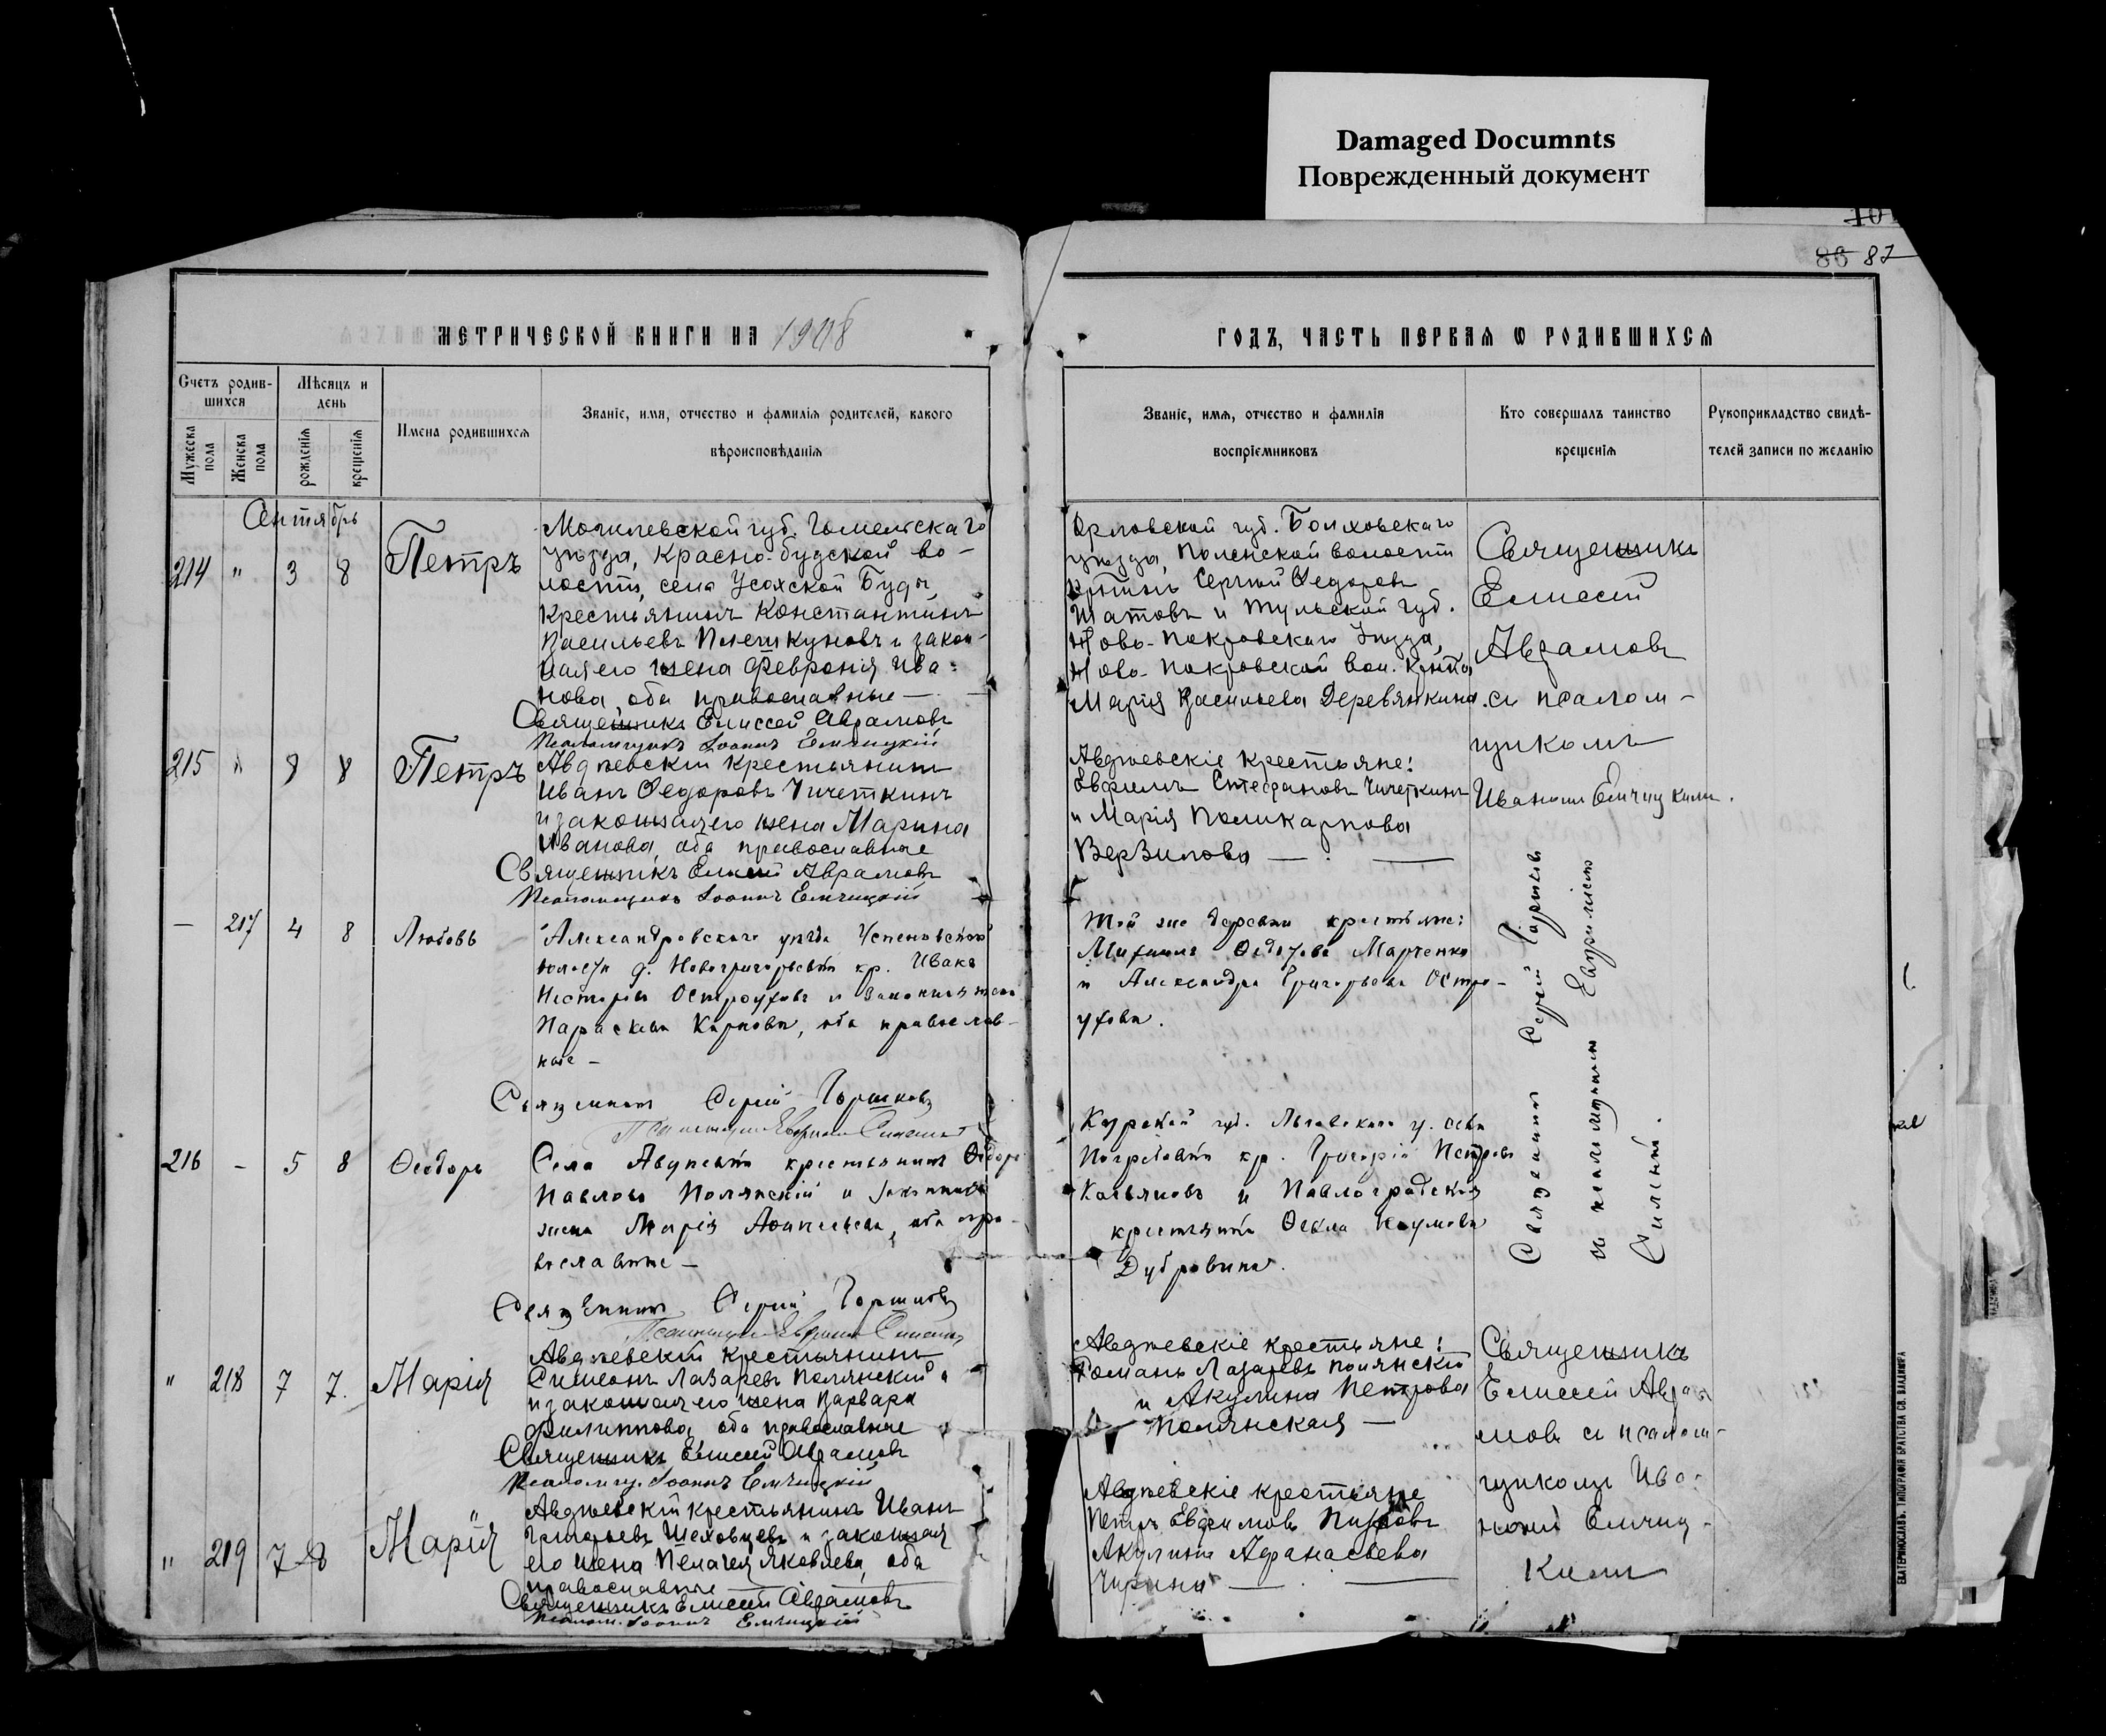 Damaged Documnts
Поврежденный документ
10
86 87
МЕТРИЧЕСКОЙ КНИГИ НА 1908
ГОДЪ, ЧАСТЬ ПЕРВАЯ Ѡ РОДИВШИХСЯ
Счетъ родившихся
Мужеска пола
Женска пола
Мѣсяцъ и день
рожденія
крещенія
Имена родившихся
Званіе, имя, отчество и фамилія родителей, какого
вѣроисповѣданія
Званіе, имя, отчество и фамилія
воспріемниковъ
Кто совершалъ таинство
крещенія
Рукоприкладство свидѣ-
телей записи по желанію
Сентябрь
214 " 3 8 Петръ
Могилевской губ. Гомельскаго
уѣзда, Красно-Будской во-
лости, села Усохской Буды
крестьянинъ Константинъ
Васильевъ и закон-
ная его жена Феврония Ива-
нова, оба православные —
Священникъ Елисей Аврамовъ
Псаломщикъ Іоаннъ Емчицкій
Орловской губ. Болховскаго
уѣзда, волости
Сергий Федоровъ
Шатовъ и Тульской губ.
Ново-Покровскаго уѣзда,
Ново-Покровской вол.
Мария Васильева Деревянкина
Священникъ
Елисей
Аврамовъ
съ псалом-
щикомъ
Иваномъ Емчицкимъ.
215 8 8 Петръ
Авдѣевский крестьянинъ
Иванъ Федоровъ Чичеткинъ
и законная его жена Марина
Иванова, оба православные
Священникъ Елисей Аврамовъ
Псаломщикъ Іоаннъ Емчицкій
Авдѣевскіе крестьяне:
Евфимъ Стефановъ Чичеткинъ
и Марія Поликарпова
Верзилова
— 217 4 8 Любовь
Александровскаго уѣзда Успеновской
волости д. Новогригорьевки кр. Иванъ
Несторовъ Остроуховъ и законная жена
Параскева Карпова, оба православ-
ные —
Священникъ Сергій Горшковъ
Той же деревни крестьяне:
Михаилъ Федотовъ Марченко
и Александра Григорьева Остро-
ухова.
Священникъ Сергій
съ псаломщикомъ
216 — 5 8 Ѳеодоръ
Села Авдѣевки крестьянинъ Ѳедоръ
Павловъ Полянскій и законная
жена Марія, оба пра-
вославные —
Священникъ Сергій Горшковъ
Курской губ. Льговскаго у. села
кр. Григорій Петровъ
Касьяновъ и Павлоградская
крестьянка Ѳекла Наумова
Дубровина.
" 218 7 7. Марія
Авдѣевскій крестьянинъ
Симеонъ Лазаревъ Полянский
и законная его жена Варвара
Филиппова, оба православные
Священникъ Елисей Аврамовъ
Псаломщ. Іоаннъ Емчицкій
Авдѣевскіе крестьяне:
Романъ Лазаревъ Полянский
и Акулина Петрова
Полянская —
Священникъ
Елисей Авра-
мовъ съ псалом-
щикомъ Ива-
номъ Емчиц-
кимъ
" 219 7 8 Марія
Авдѣевскій крестьянинъ Иванъ
Григорьевъ Шеховцевъ и законная
его жена Пелагея Яковлева, оба
православные
Священникъ Елисей Аврамовъ
Псалом. Іоаннъ Емчицкій
Авдѣевскіе крестьяне
Петръ Евфимовъ
Акулина Афанасьева
ЕКАТЕРИНОСЛАВЪ. ТИПОГРАФІЯ БРАТСТВА СВ. ВЛАДИМІРА